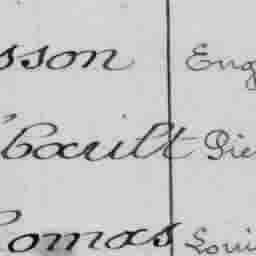 sson Eug
bault Pie
omas Loui